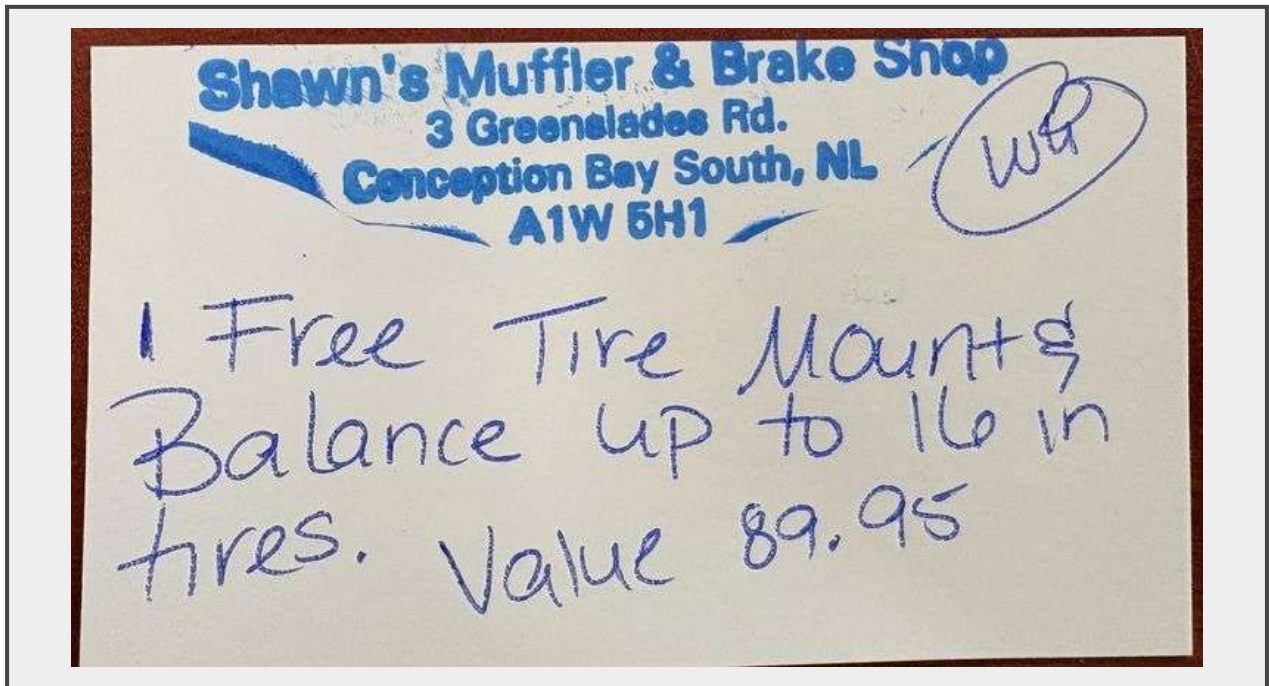 Shawn's Muffler & Brake Shop
3 Greenslades Rd.
Conception Bay South, NL
A1W 5H1
1 Free Tire Mount &
Balance up to 16 in
tires. Value 89.95